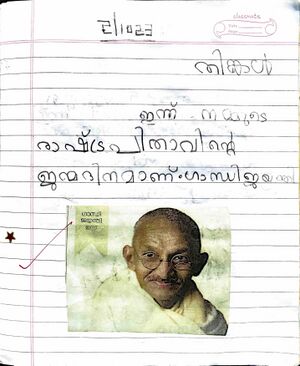 classmate
Date
Page
2/10/23
തിങ്കൾ
ഇന്ന് നമ്മുടെ
രാഷ്ട്രപിതാവിന്റെ
ജന്മദിനമാണ്. ഗാന്ധിജയന്തി
ഗാന്ധി
ജയന്തി
ഇന്ന്